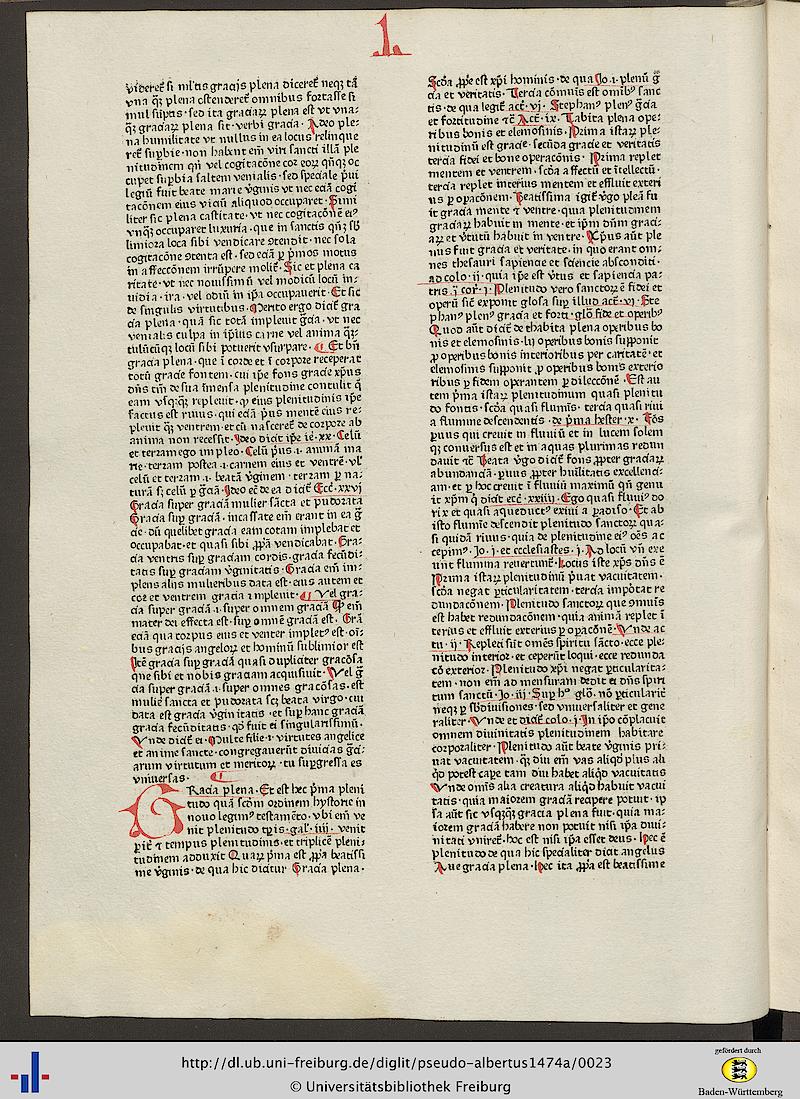 L
videret̄ si nil'tis gracijs plena diceret̄ neqꝫ tā
vna qꝫ plena ostenderet̄ omnibus fortasse si
mul sūptis · sed ita graciaꝝ plena est vt vna-
qꝫ graciaꝝ plena sit · verbi gracia · Adeo ple-
na humilitate vt nullus in ea locus relinque
ret̄ suꝑbie · non habent em̄ viri sancti illā ple
nitudinem qn̄ vel cogitacōne cor eoꝝ qn̄qꝫ oc
cupet suꝑbia saltem venialis · sed speciale p̄ui
legiū fuit beate marie v̓ginis vt nec eciā cogi
tacōnem eius viciū aliquod occuparet · Simi
liter sic plena castitate · vt nec cogitacōnē eiꝰ
vnqꝫ occuparet luxuria · que in sanctis qn̄ꝫ sb̄
limiora loca sibi vendicare ꝯtendit · nec sola
cogitacōne ꝯtenta est · sed eciā ꝑ p̄mos motus
in affeccōnem irrūpere molit̄ · Sic et plena ca
ritate · vt nec nouissimū vel modicū locū in-
uidia · ira · vel odiū in ip̄a occupauerit · Et sic
de singulis virtutibus · Merito ergo dicit̄ gra
cia plena · quā sic totā impleuit gr̄cia · vt nec
venialis culpa in ip̄ius carne vel anima qꝫ-
tulūcūqꝫ locū sibi potuerit vsurpare · Et bn̄
gracia plena · que ī corde et ī corpore receperat
totū gracie fontem · cui ip̄e fons gracie xp̄us
dn̄s tm̄ de sua īmensa plenitudine contulit q̄
eam vsqꝫqꝫ repleuit · ꝙ eius plenitudinis ip̄e
factus est riuus · qui eciā p̄us mentē eius re-
pleuit qꝫ ventrem · et cū nasceret̄ de corpore ab
anima non recessit · Ideo dicit ip̄e ie · xx · Celū
et terram ego impleo · Celū p̄us · i · animā ma
rie · terram postea · i · carnem eius et ventrē · vl̓
celū et terram · i · beatā v̓ginem · terram ꝑ na-
turā sꝫ celū ꝑ gr̄ciā · Ideo ec̄ de ea dicit̄ Ecc̄ · xxvj
Gracia super graciā mulier sācta et pudorata
Gracia suꝑ graciā · incassate em̄ erant in ea gr̄
cie · dū quelibet gracia eam totam implebat et
occupabat · et quasi sibi ꝓpā vendicabat · Gra-
cia ventris suꝑ graciam cordis · gracia fecūdi-
tatis suꝑ graciam v̓ginitatis · Gracia em̄ im-
plens alijs mulieribus data est · eius autem et
cor et ventrem gracia impleuit · Vel gra-
cia super graciā · i · super omnem graciā Q̄ em̄
mater dei effecta est · suꝑ omnē graciā est · Grā
eciā qua corpus eius et venter impletꝰ est · oī-
bus gracijs angeloꝝ et hominū sublimior est
Itē gracia suꝑ graciā quasi dupliciter graciosa
que sibi et nobis graciam acquisiuit · Vel gr̄
cia super graciā · i · super omnes graciōsas · est
mulie sancta et pudorata scꝫ beata virgo · cui
data est gracia v̓ginitatis · et suꝑ hanc graciā
gracia fecūditatis · qd̓ fuit ei singularissimū ·
Vnde dicit̄ ei · Multe filie · i · virtutes angelice
et anime sancte · congregauerūt diuicias gr̄ci-
arum virtutum et meritoꝝ · tu suꝑgressa es
vniuersas ·
GRacia plena · Et est hec p̄ma pleni
tudo quā scd̄m ordinem hystorie in
nouo legimꝰ testamēto · vbi em̄ ve
nit plenitudo tp̄is · gal̓ · iiij · venit
ꝑit̄ et tempus plenitudinis · et triplicē pleni-
tudinem adduxit Quaꝝ p̄ma est ꝓpā beatissi
me v̓ginis · de qua hic dicitur Gracia plena ·
Scd̄a ꝓpe est xp̄i hominis · de qua Jo · i · plenū gr̄
cia et veritatis · Tercia cōmunis est omībꝰ sanc
tis · de qua legit̄ act̄ · vj · Stephanꝰ plenꝰ gr̄cia
et fortitudine ⁊c̄ Act̄ · ix · Tabita plena ope-
ribus bonis et elemosinis · Prima istaꝝ ple-
nitudinū est gracie · secūda gracie et veritatis
tercia fidei et bone operacōnis · Prima replet
mentem et ventrem · scd̄a affectū et ītellectū ·
tercia replet interius mentem et effluit exteri
us ꝑ oꝑacōnem · Beatissima igit̄ v̓go plea fu
it gracia mente et ventre · quia plenitudinem
graciaꝝ habuit in mente · et ip̄m dn̄m graci-
aꝝ et v̓tutū habuit in ventre · Xp̄us aūt ple
nus fuit gracia et veritate · in quo erant om-
nes thesauri sapiencie et sciencie absconditi ·
ad colo · ij · quia ip̄e est v̓tus et sapiencia pa-
tris · j · cor̄ · j · Plenitudo vero sanctoꝝ ē fidei et
operū sic̄ exponit glosa suꝑ illud act̄ · vj · Ste
phanꝰ plenꝰ gracia et forti · glo̅ fide et operibꝰ
Quod aūt dicit̄ de thabita plena operibus bo
nis et elemosinis · lꝫ operibus bonis supponit
ꝓ operibus bonis interioribus per caritatē · et
elemosinis supponit ꝓ operibus bonis exterio
ribus ꝑ fidem operantem ꝑ dileccōnē · Est au
tem p̄ma istaꝝ plenitudinum quasi plenitu
do fontis · scd̄a quasi flumīs · tercia quasi riui
a flumine descendentis · de p̄ma hester · x · Fōs
ꝑuus qui creuit in fluuiū et in lucem solem
qꝫ conuersus est et in aquas plurimas redun
dauit ⁊c̄ Beata v̓go dicit̄ fons ꝓpter graciaꝝ
abundanciā · ꝑuus ꝓpter huīlitatis excellenci-
am · et ꝑ hoc creuit ī fluuiū maximū qn̄ genu
it xp̄m q̄ dicit ecc̄ · xxiiij · Ego quasi fluuiꝰ do
rix et quasi aqueductꝰ exiui a ꝑadiso · Et ab
isto flumīe descendit plenitudo sanctoꝝ qua-
si quidā riuus · quia de plenitudine eiꝰ oēs ac
cepimꝰ · Jo · j · et ecclesiastes · j · Ad locū vn̄ exe
unt flumina reuertunt̄ · Locus iste xp̄s dn̄s ē
Prima istaꝝ plenitudinū p̄uat vacuitatem ·
scd̄a negat ꝑticularitatem · tercia impōtat re
dundacōnem · Plenitudo sanctoꝝ que ꝯmuis
est habet redundacōnem · quia animā replet ī
terius et effluit exterius ꝑ oꝑacōnē · Vnde ac
tu · ij · Repleti sūt omēs spiritu sācto · ecce ple-
nitudo interior · et ceperūt loqui · ecce redunda
cō exterior · Plenitudo xp̄i negat ꝑticularita-
tem · non em̄ ad mensuram dedit ei dn̄s spiri
tum sanctū · Jo · iij · Suꝑ hº glo̅ · nō ꝑticularit̄
neqꝫ ꝑ sb̄diuisiones · sed vniuersaliter et gene
raliter · Vnde et dicit̄ colo · j · In ip̄o cōplacuit
omnem diuinitatis plenitudinem habitare
corporaliter · Plenitudo aūt beate v̓ginis pri-
uat vacuitatem · qꝫ diu em̄ vas aliqd̓ plus ali
qd̓ potest caꝑe tam diu habet aliqd̓ vacuitatis
Vnde omīs alia creatura aliqd̓ habuit vacui
tatis · quia maiorem graciā recipere potuit · ip̄
sa aūt sic vsqꝫqꝫ gracia plena fuit · quia ma-
iorem graciā habere non potuit nisi ip̄a diui-
nitati vniret̄ · hoc est nisi ip̄a esset deus · Hec ē
plenitudo de qua hic specialiter dicit angelus
Aue gracia plena · Hec ita ꝓpa est beatissime
http://dl.ub.uni-freiburg.de/diglit/pseudo-albertus1474a/0023
© Universitätsbibliothek Freiburg
gefördert durch
Baden-Württemberg